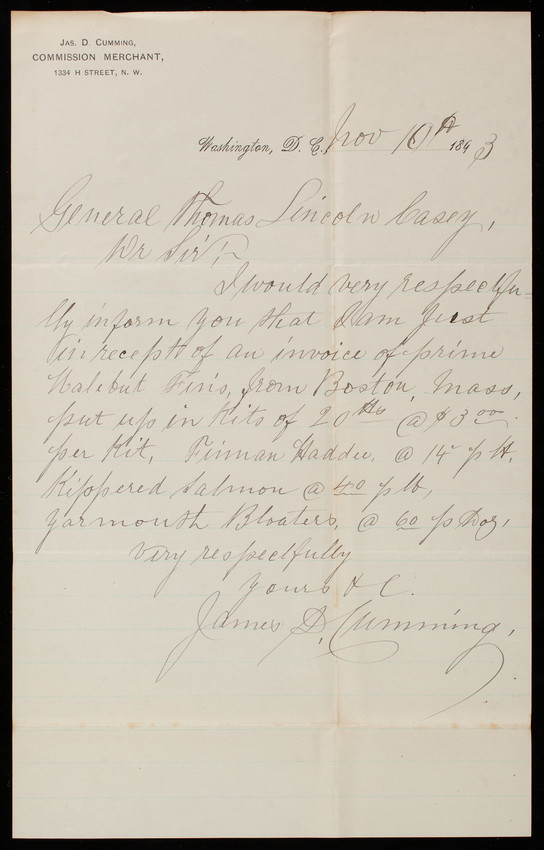 JAS. D. CUMMING,
COMMISSION MERCHANT,
1334 H STREET, N. W.
Washington, D. C., Nov 10th 1893
General Thomas Lincoln Casey,
Dr Sir:-
I would very respectfu-
lly inform you that I am just
in recept of an invoice of prime
Halebut Fins, from Boston, Mass,
put up in Kits of 20 lbs @ $3 00.
per Kit, Finnan Haddie, @ 14 p lb.
Kippered Salmon @ 40 p lb,
yarmouth Bloaters, @ 60 p Doz,
very respectfully
yours & C.
James D. Cumming.